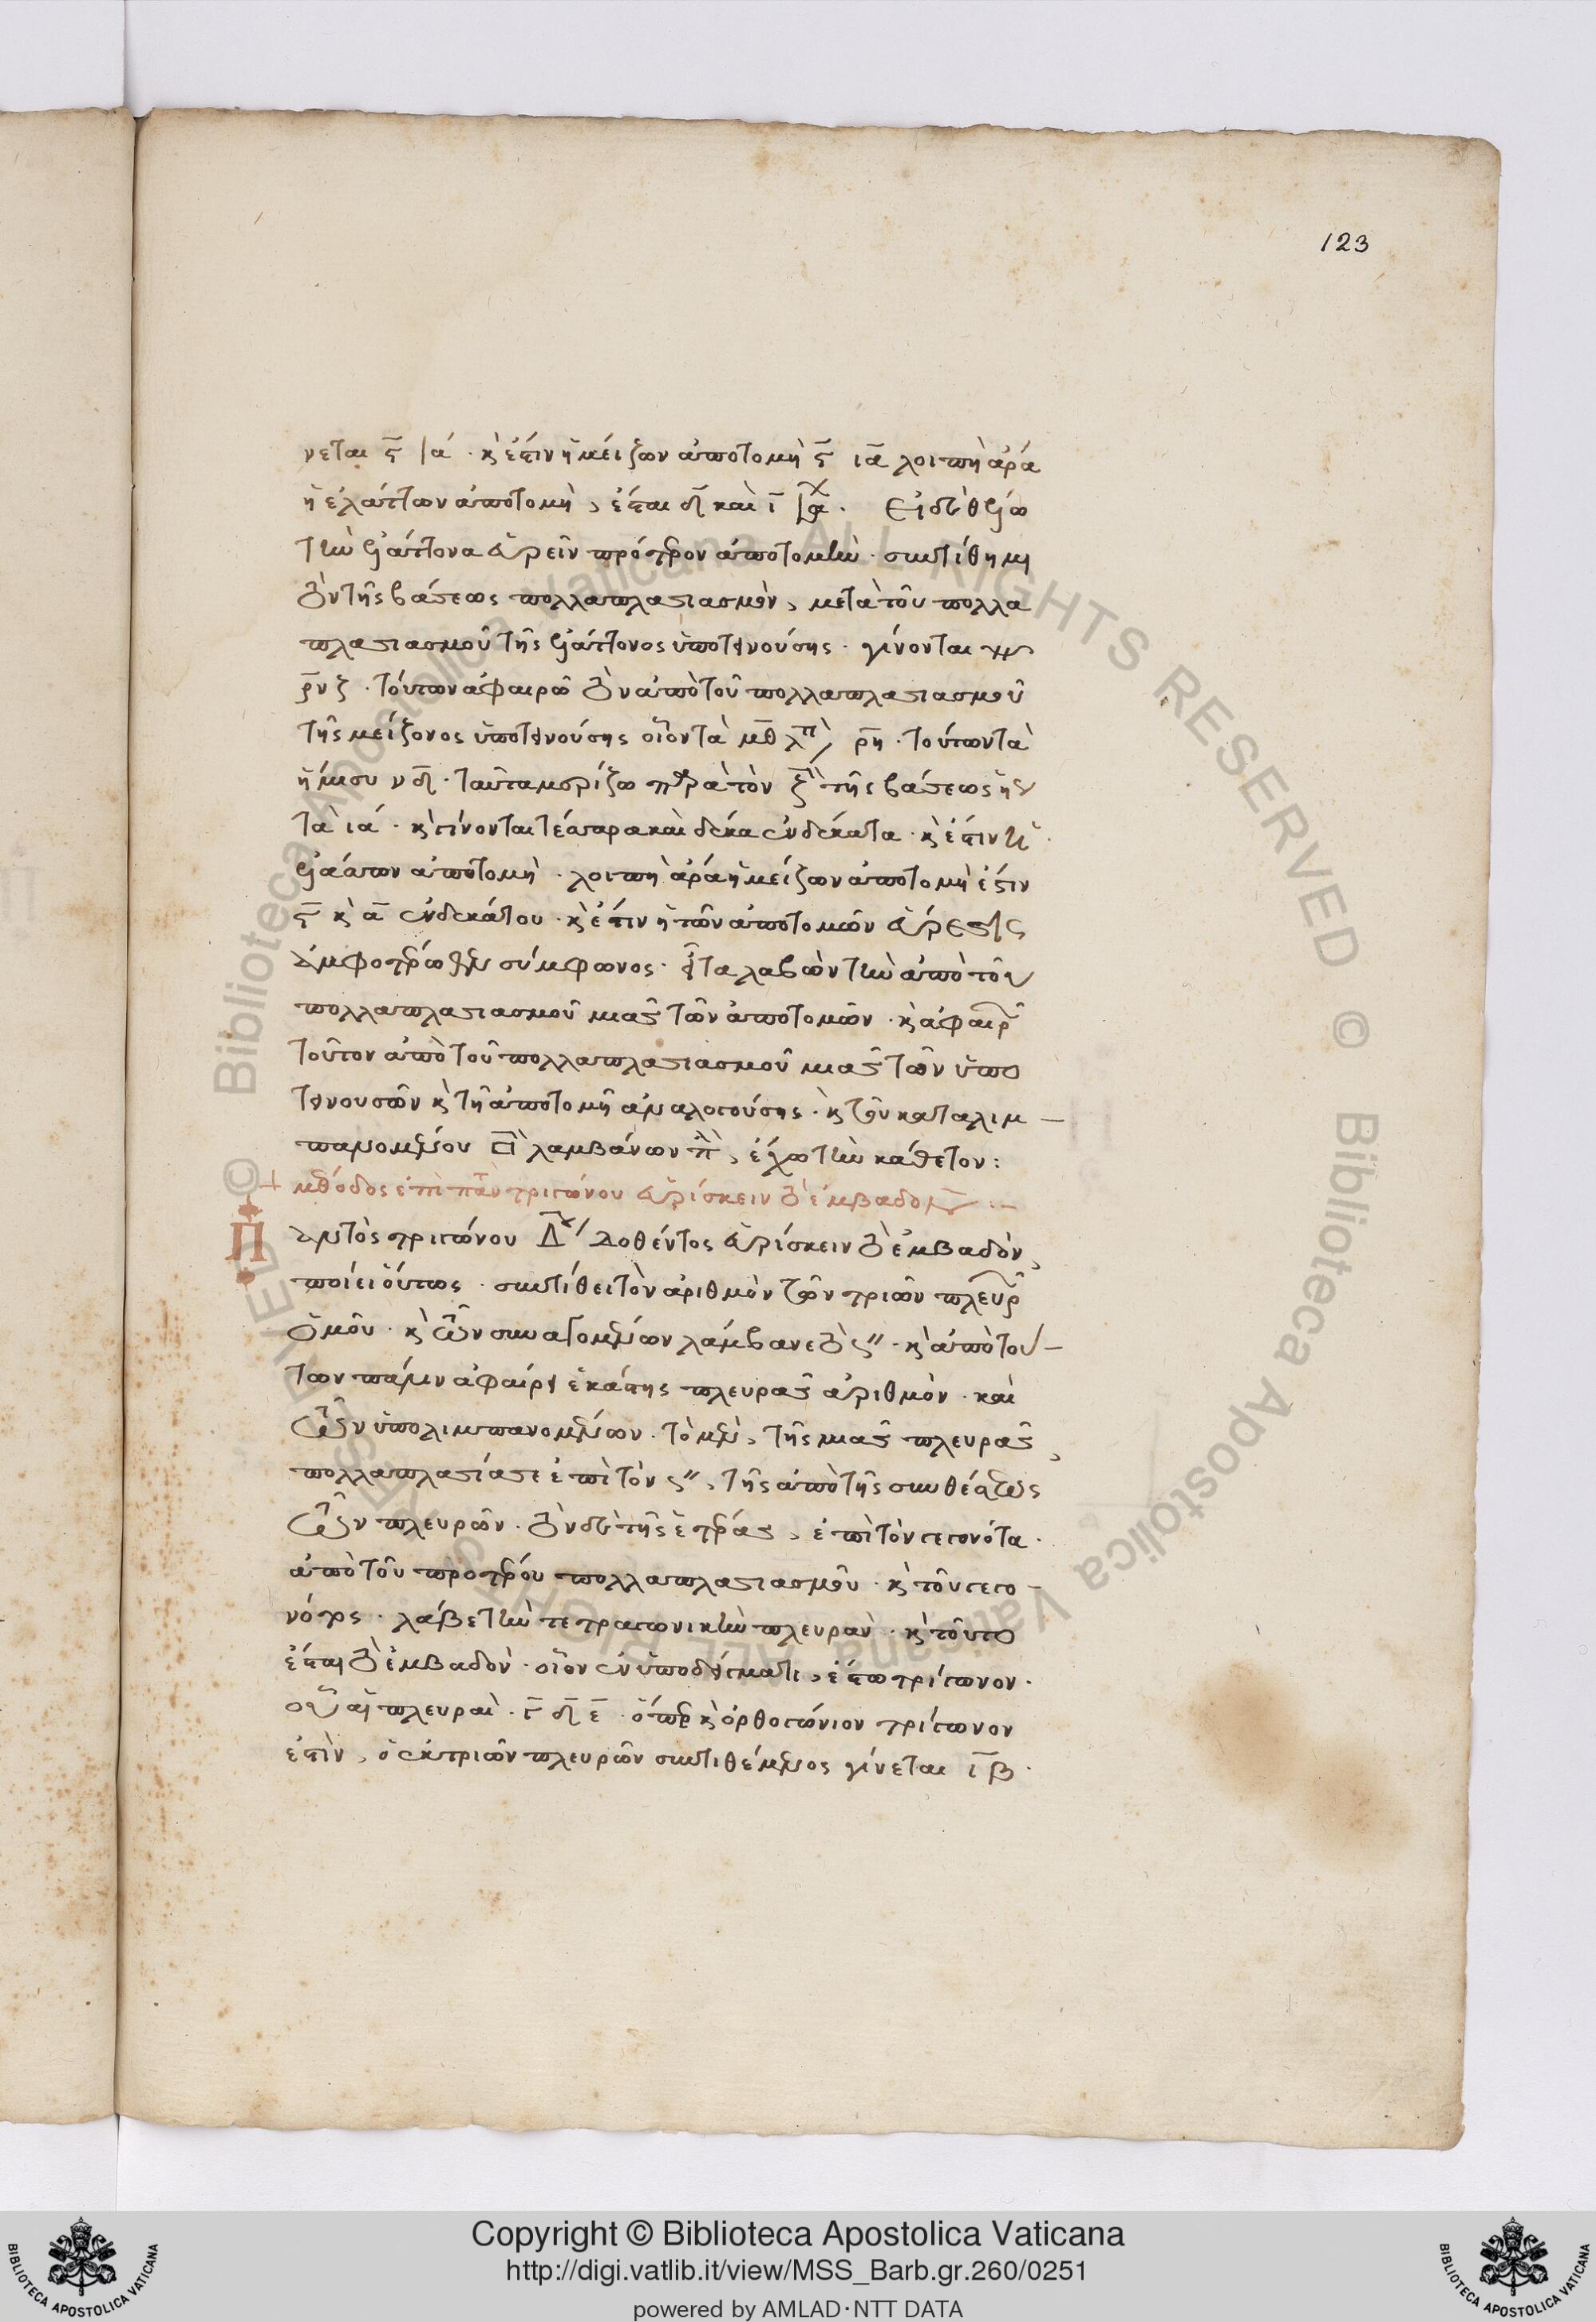 123
νεται ϛ ια · κ ἐστιν ἡ μείζων ἀποτομὴ ϛ ια λοιπὴ ἄρα
ἡ ἐλάττων ἀποτομὴ, ἔσται δ καὶ ι
τὴν ἐλάττονα εὑρεῖν πρότερον ἀποτομὴν · συντίθημι
τὸν τῆς βάσεως πολλαπλασιασμὸν, μετὰ τοῦ πολλα
πλασιασμοῦ τῆς ἐλάττονος ὑποτεινούσης · γίνονται
ρνζ · τούτων ἀφαιρῶ τὸν ἀπὸ τοῦ πολλαπλασιασμοῦ
τῆς μείζονος ὑποτεινούσης οἷον τὰ μθ λπ ρη · τούτων τὰ
ἥμισυ νδ · ταῦτα μερίζω παρὰ τὸν τῆς βάσεως
τὰ ια · κ γίνονται τέσσαρα καὶ δέκα ἐνδέκατα · κ ἐστιν ἡ
ἐλάσσων ἀποτομὴ · λοιπὴ ἄρα ἡ μείζων ἀποτομὴ ἐστιν
ϛ κ α ἐνδεκάτου · κ ἐστιν ἡ τῶν ἀποτομῶν εὕρεσις
ἀμφοτέρωθεν σύμφωνος · εἶτα λαβὼν τὴν ἀπὸ τοῦ
πολλαπλασιασμοῦ μιᾶς τῶν ἀποτομῶν · κ ἀφαιρ
τοῦτον ἀπὸ τοῦ πολλαπλασιασμοῦ μιᾶς τῶν ὑπο
τεινουσῶν κ τῇ ἀποτομῇ ἀναλογούσης · κ τοῦ καταλιμ–
πανομένου λαμβάνων, ἔχω τὴν κάθετον :
+ μέθοδος ἐπὶ παν τριγώνου εὑρίσκειν τὸ ἐμβαδόν :–
Παντὸς τριγώνου δοθέντος εὑρίσκειν τὸ ἐμβαδὸν,
ποίει οὕτως · συντίθει τὸν ἀριθμὸν τῶν τριῶν πλευρ
ὁμοῦ · κ τῶν συναγομένων λάμβανε τὸ ϛ″ · κ ἀπὸ τού–
των πάλιν ἀφαίρει ἑκάστης πλευρᾶς ἀριθμὸν · καὶ
τῶν ὑπολιμπανομένων · τὸ μὲν, τῆς μιᾶς πλευρᾶς,
πολλαπλασίασε ἐπὶ τὸν ϛ″, τῆς ἀπὸ τῆς συνθέσεως
τῶν πλευρῶν · τὸν δὲ τῆς ἑτέρας, ἐπὶ τὸν γεγονότα ·
ἀπὸ τοῦ προτέρου πολλαπλασιασμοῦ · κ τοῦ γεγο–
νότος · λάβε τὴν τετραγωνικὴν πλευρὰν · κ τοῦτο
ἔσται τὸ ἐμβαδὸν · οἷον ἐν ὑποδείγματι, ἔστω τρίγωνον ·
οὗ αἱ πλευραὶ · γ δ ε · ὅπερ κ ὀρθογώνιον τρίγωνον
ἐστὶν, ὁ ἐκ τριῶν πλευρῶν συντιθέμενος γίνεται ιβ ·
© Biblioteca Apostolica Vaticana ALL RIGHTS RESERVED © Biblioteca Apostolica Vaticana ALL RIGHTS RESERVED
Copyright © Biblioteca Apostolica Vaticana
http://digi.vatlib.it/view/MSS_Barb.gr.260/0251
powered by AMLAD·NTT DATA
BIBLIOTECA APOSTOLICA VATICANA
BIBLIOTECA APOSTOLICA VATICANA